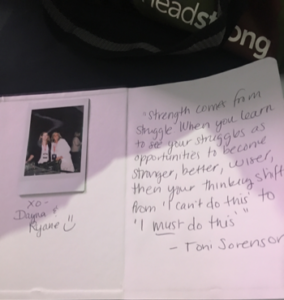 headstrong
xo-
Dayna &
Ryane
"Strength comes from
struggle. When you learn
to see your struggles as
opportunities to become
stronger, better, wiser,
then your thinking shifts
from 'I can't do this' to
'I must do this'"
- Toni Sorenson